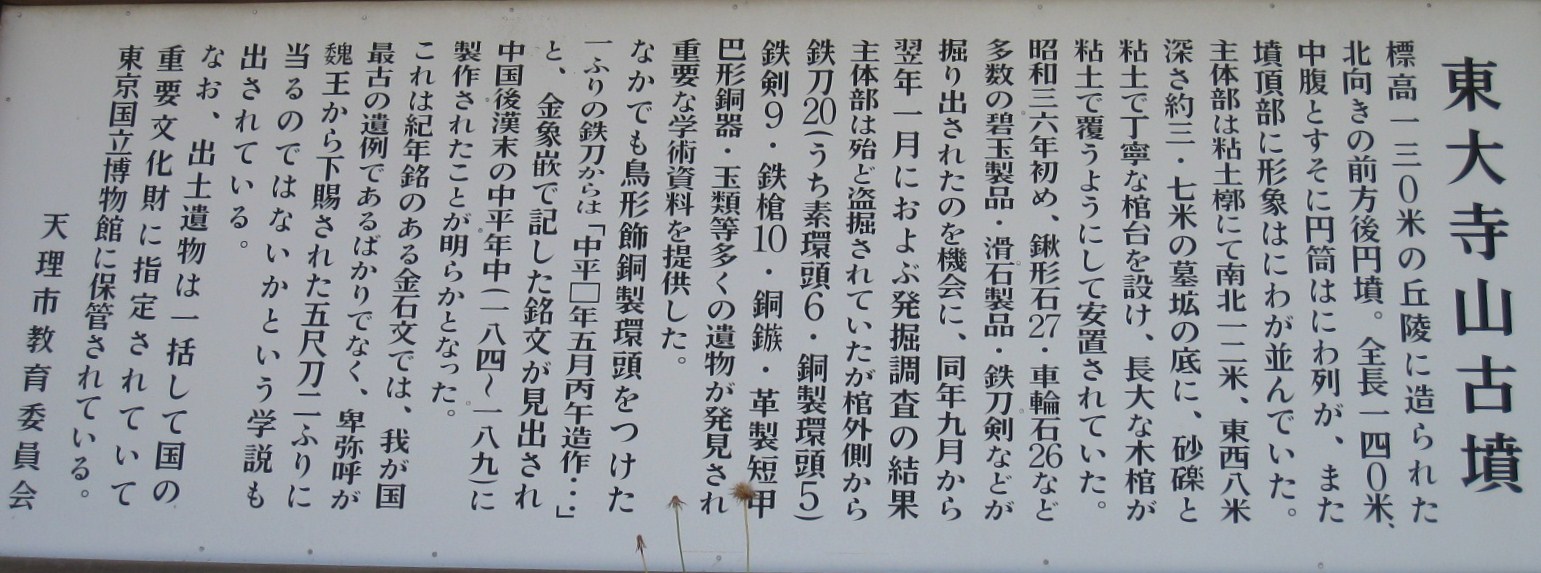 東大寺山古墳
標高一三〇米の丘陵に造られた
北向きの前方後円墳。全長一四〇米、
中腹とすそに円筒はにわ列が、また
墳頂部に形象はにわが並んでいた。
主体部は粘土槨にて南北一二米、東西八米
深さ約三・七米の墓拡の底に、砂礫と
粘土で丁寧な棺台を設け、長大な木棺が
粘土で覆うようにして安置されていた。
昭和三六年初め、鍬形石27・車輪石26など
多数の碧玉製品・滑石製品・鉄刀剣などが
掘り出されたのを機会に、同年九月から
翌年一月におよぶ発掘調査の結果
主体部は殆ど盗掘されていたが棺外側から
鉄刀20(うち素環頭6・銅製環頭5)
鉄剣9・鉄槍10・銅鏃・革製短甲
巴形銅器・玉類等多くの遺物が発見され
重要な学術資料を提供した。
なかでも鳥形飾銅製環頭をつけた
一ふりの鉄刀からは「中平□年五月丙午造作・・・」
と、金象嵌で記した銘文が見出され
中国後漢末の中平年中(一八四〜一八九)に
製作されたことが明らかとなった。
これは紀年銘のある金石文では、我が国
最古の遺例であるばかりでなく、卑弥呼が
魏王から下賜された五尺刀二ふりに
当るのではないかという学説も
出されている。
なお、出土遺物は一括して国の
重要文化財に指定されていて
東京国立博物館に保管されている。
天理市教育委員会